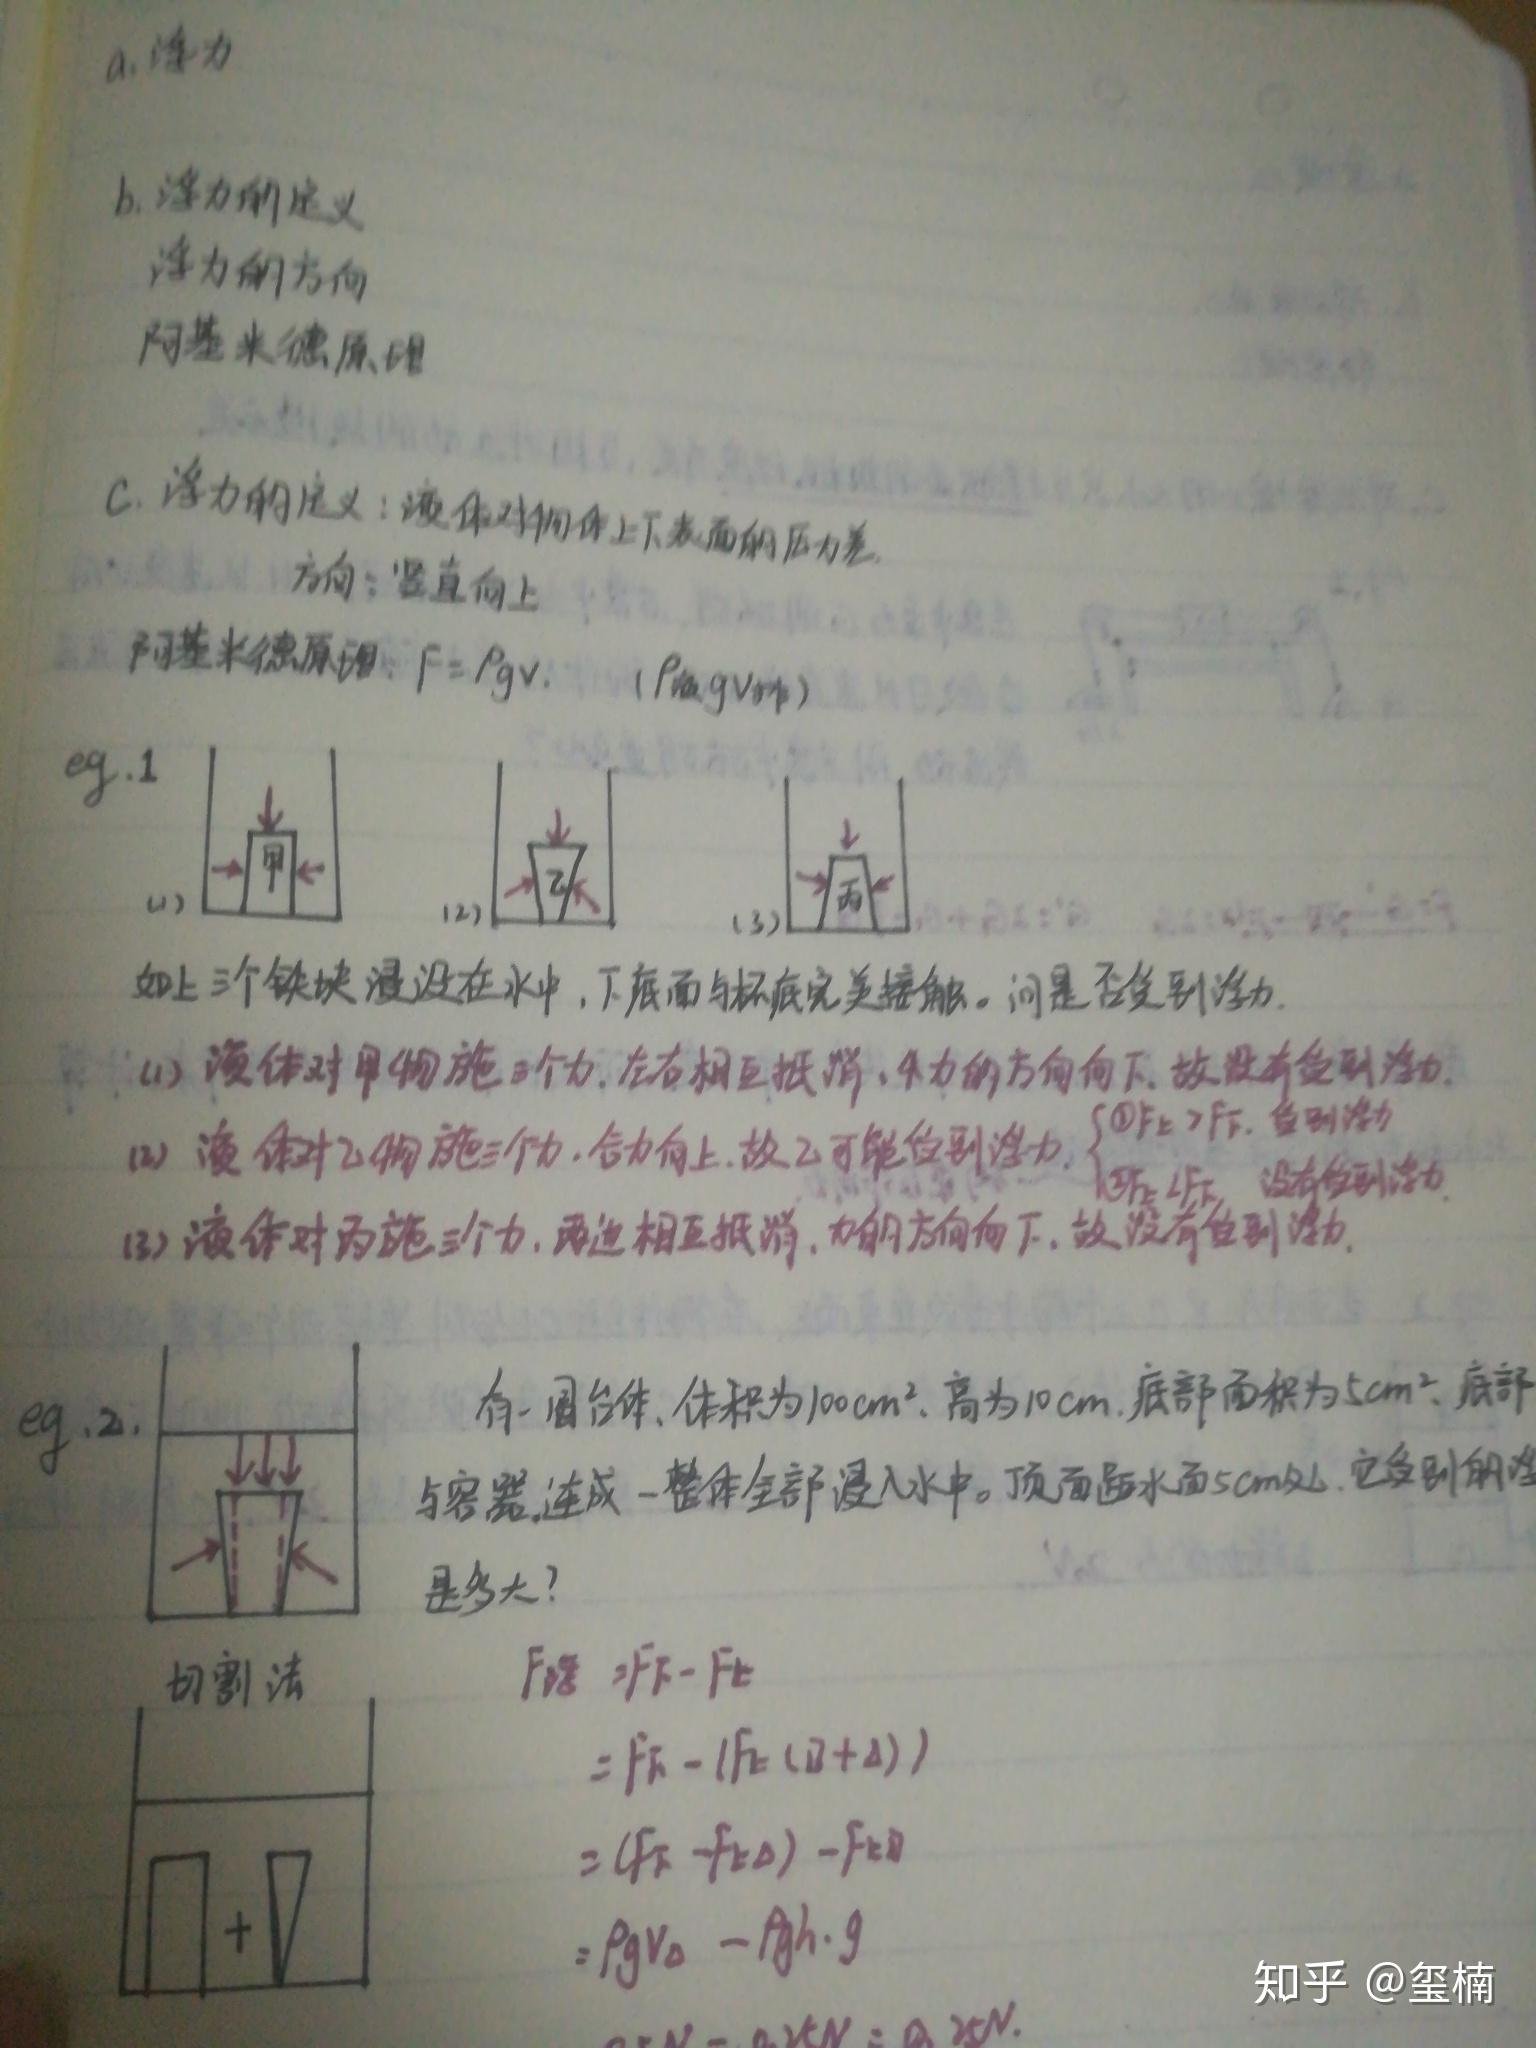 a. 浮力
b. 浮力的定义
浮力的方向
阿基米德原理
c. 浮力的定义：液体对物体上下表面的压力差.
方向：竖直向上
阿基米德原理：F=ρgv. (ρ液gv排)
eg.1
甲 乙 丙
(1) (2) (3)
如上三个铁块浸没在水中，下底面与杯底完美接触。问是否受到浮力.
(1) 液体对甲物施三个力.左右相互抵消，个力的方向向下.故没有受到浮力.
(2) 液体对乙物施三个力.合力向上.故乙可能受到浮力. ①F上>F下.受到浮力
②F上<F下, 没有受到浮力.
(3) 液体对丙施三个力，两边相互抵消，力的方向向下，故没有受到浮力.
eg.2.
有一圆台体、体积为100cm²、高为10cm.底部面积为5cm²、底部
与容器连成一整体全部浸入水中。顶面距水面5cm处.它受到的浮
是多大？
切割法
F浮 =F下-F上
=F下-(F上(□+△))
=(F下-F上△)-F上□
=ρgv△ -ρgh·g
+
0.5N-0.25N=0.25N.
知乎 @玺楠